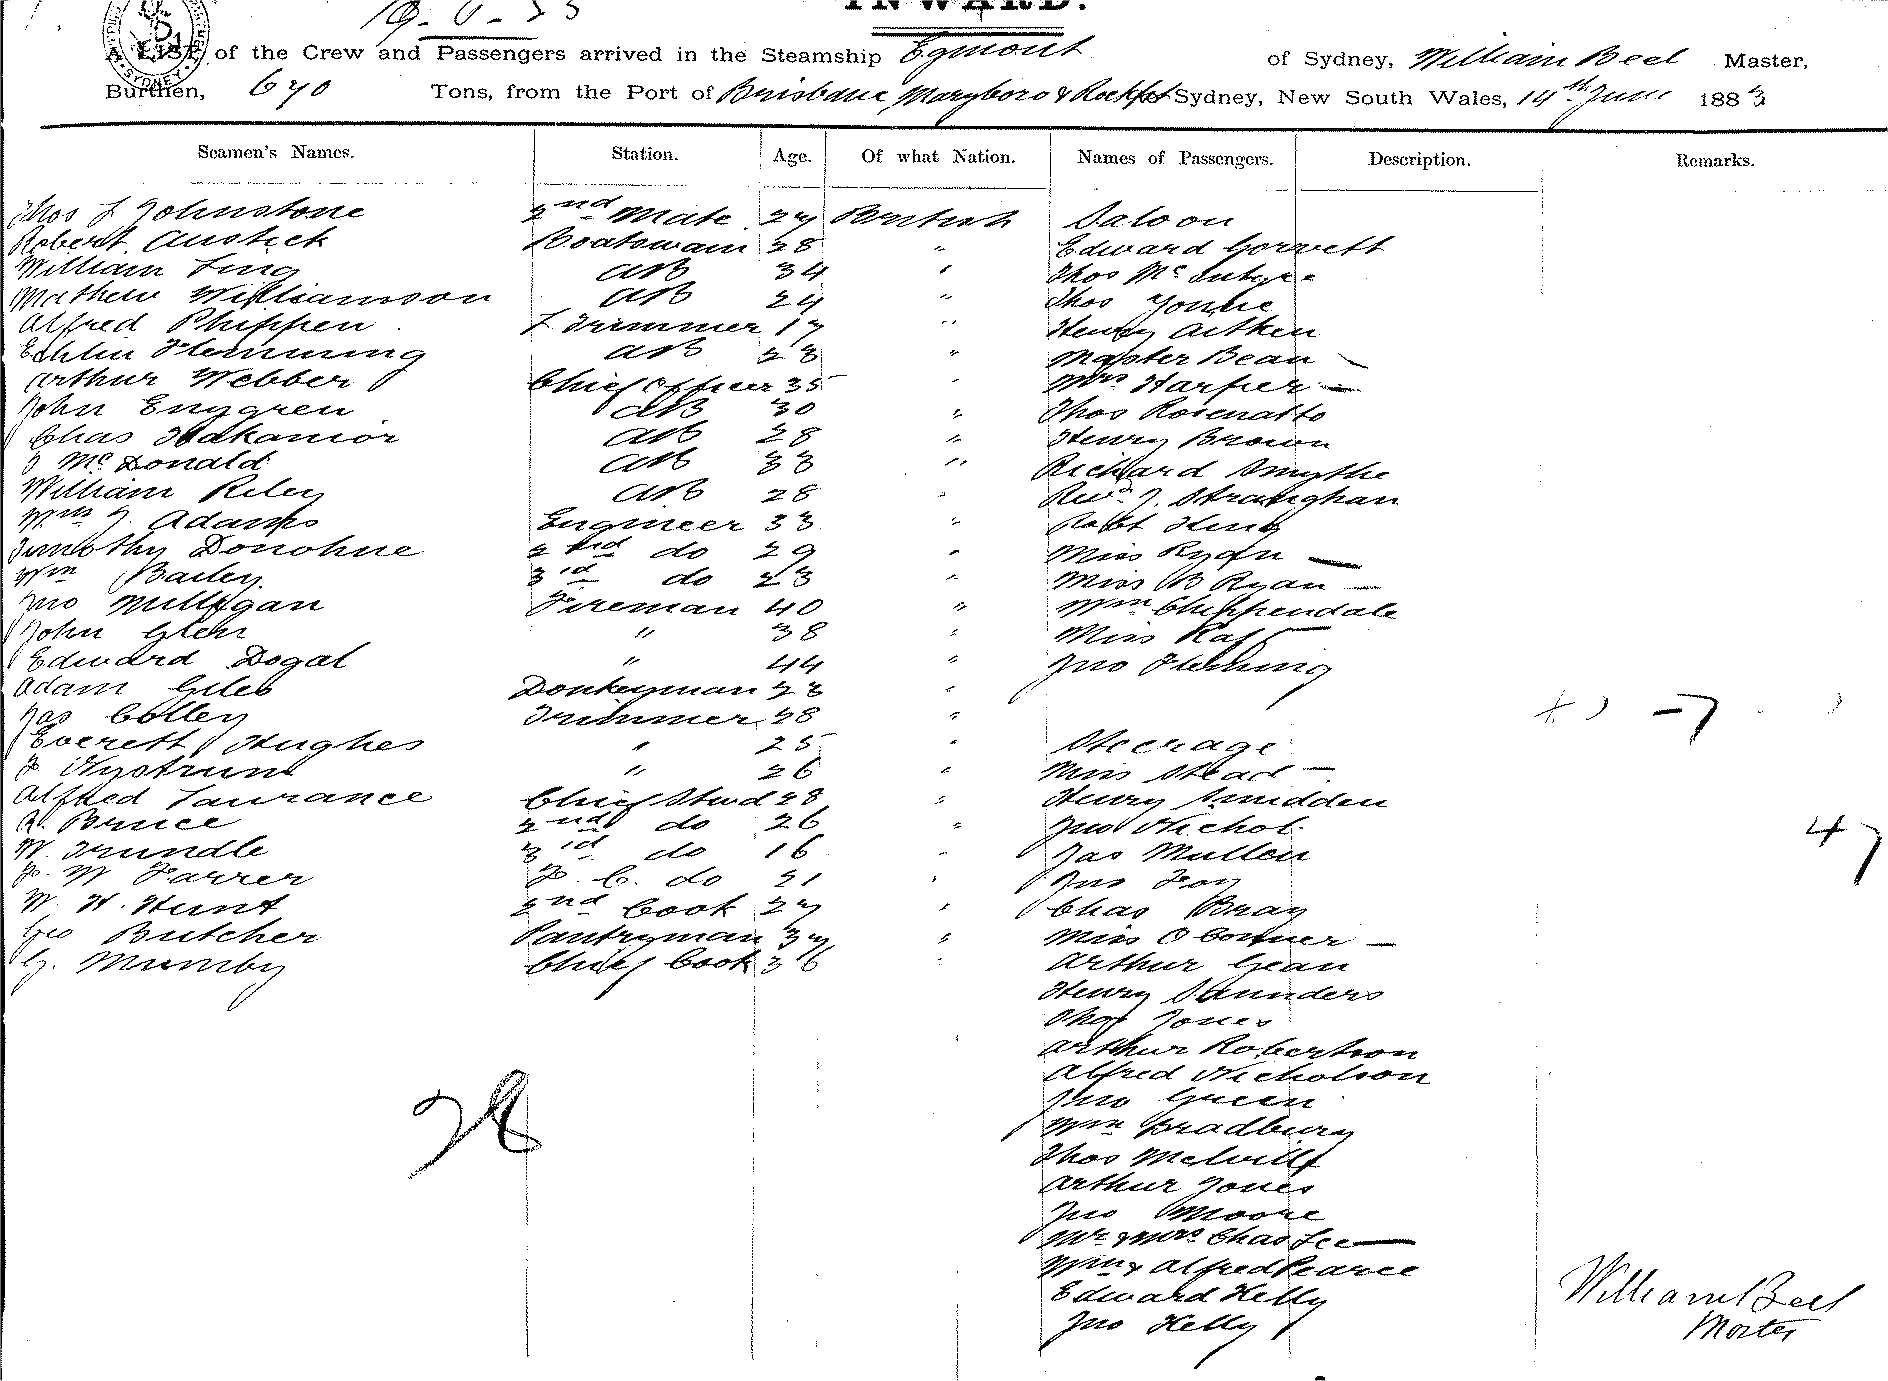 INWARD.
A LIST of the Crew and Passengers arrived in the Steamship Egmont of Sydney, William Beel Master,
Burthen, 670 Tons, from the Port of Brisbane Maryboro & Rockpt to Sydney, New South Wales, 14th June 1883
Seamen's Names. Station. Age. Of what Nation. Names of Passengers. Description. Remarks.
Thos J Johnstone 2nd Mate 27 British Saloon
Robert Austick Boatswain 28 " Edward Gorrett
William Ling AB 34 " Thos McIntyre
Mathew Williamson AB 24 " Thos
Alfred Phippen L Trimmer 17 " Henry Aitken
Echlin Flemming AB 23 " Master Bean
Arthur Webber Chief Officer 35 " Mrs Harper —
John Enggren AB 30 " Thos Rosenatto
Chas AB 28 " Henry Brown
J McDonald AB 33 " Richard Smythe
William Riley AB 28 " Revd J. Straughan
Wm J. Adams Engineer 33 " Robt King
Timothy Donohue 2nd do 29 " Miss Ryan —
Wm Bailey 3rd do 23 " Miss B Ryan —
Jno Milligan Fireman 40 " Wm Chippendale
John Glen " 38 " Miss
Edward Dogal " 44 " Jno Fleming
Adam Giles Donkeyman 23 "
Jas Colley Trimmer 28 "
Everett Hughes " 25 " Steerage
F Nystrum " 26 " Miss Stead —
Alfred Laurance Chief Stwd 28 " Henry Smidden
Bruce 2nd do 26 " Jno Nichol
W. Trundle 3rd do 16 " Jas Mullen
F. W Farrer F. C. do 21 " Jno Foy
W. H. Hunt 2nd Cook 27 " Chas Bray
Geo Butcher Pantryman 37 " Miss O Conner —
G. Mumby Chief Cook 36 " Arthur Gean
Henry Saunders
Thos Jones
Arthur Robertson
Alfred Nicholson
Jno Green
Wm Bradbury
Thos Melville
Arthur Jones
Jno Moore
Mr & Mrs Chas Lee —
Wm & Alfred Pearce
Edward Kelly
Jno Kelly
28
47
William Beel
Master